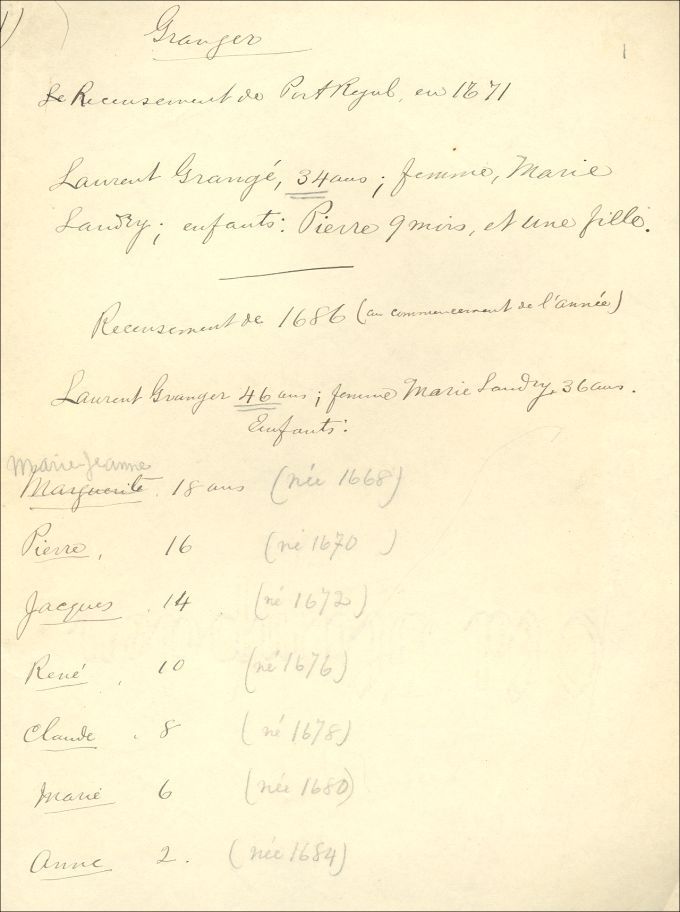 Granger
1
Le Recensement de Port Royal, en 1671
Laurent Grangé, 34 ans; femme, Marie
Landry; enfants: Pierre 9 mois, et une fille.
Recensement de 1686 (au commencement de l'année)
Laurent Granger 46 ans; femme Marie Landry, 36 ans.
Enfants:
Marie-Jeanne
Marguerite. 18 ans (née 1668)
Pierre, 16 (né 1670)
Jacques. 14. (né 1672)
René. 10 (né 1676)
Claude. 8 (né 1678)
Marie 6 (née 1680)
Anne 2. (née 1684)